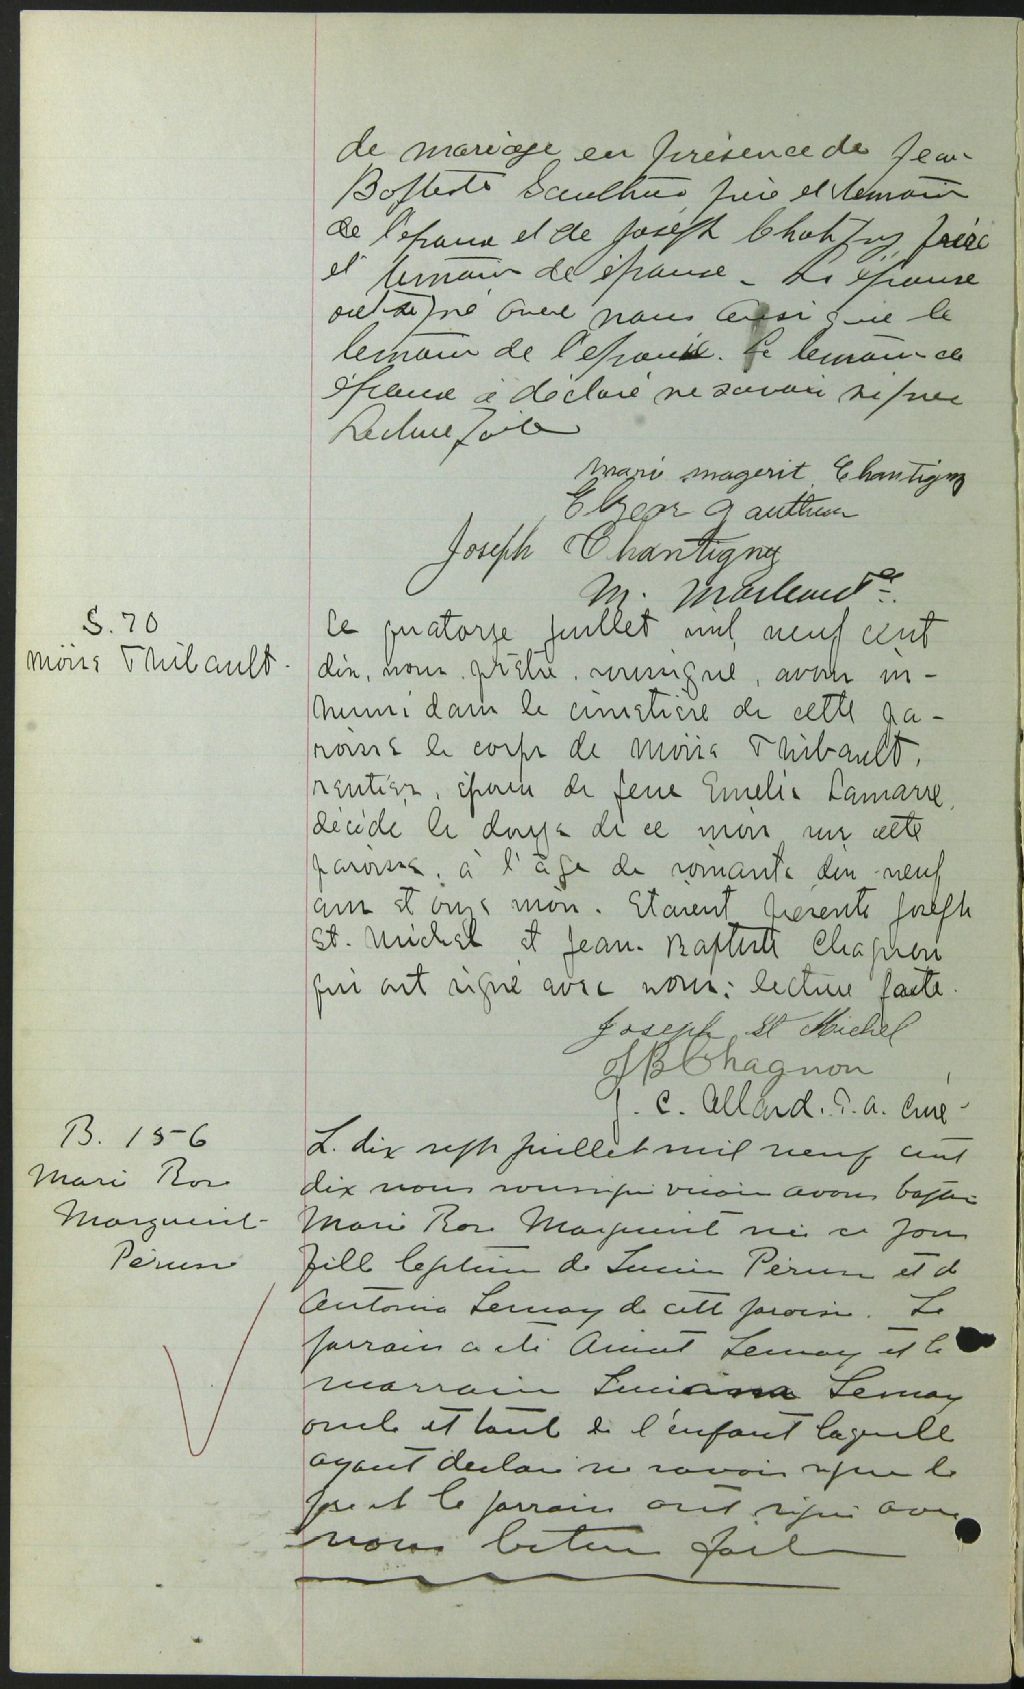 de mariage en présence de Jean
Baptiste Gauthier père et temoin
de l'epoux et de Joseph Chantigny frère
et temoin de épouse _ Les épouse
ont signé avec nous ainsi que le
temoin de l'epouse. Le temoin de
époux a déclaré ne savoir signer
Lecture faite
Mari magerit Chantigny
Elzear Gauthier
Joseph Chantigny
M.
S. 70
Moïse Thibault.
Ce quatorze juillet mil neuf cent
dix, nous prêtre, soussigné, avons in-
humé dans le cimetière de cette pa-
roisse le corps de Moïse Thibault,
rentier, époux de feue Emelie Lamarre,
décédé le douze de ce mois sur cette
paroisse, à l'âge de soixante dix-neuf
ans et onze mois. Etaient présents Joseph
St. Michel et Jean-Baptiste Chagnon
qui ont signé avec nous; lecture faite.
Joseph St Michel
J B Chagnon
J. C. Allard. P. A. Curé
B. 156
Marie Rose
Marguerite
Perusse
Le dix sept juillet mil neuf cent
dix nous soussigné vicaire avons baptisé
Marie Rose Marguerite née ce jour
fille legitime de Lucien Perusse et de
Antonia Lemay de cette paroisse. Le
parrain a été Lemay et la
marraine Lemay
oncle et tante de l'enfant laquelle
ayant declaré ne savoir signer le
père et le parrain ont signé avec
nous lecture faite